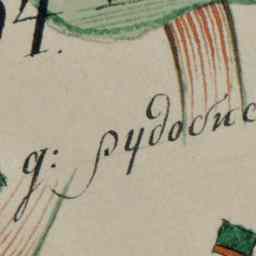 54.
д: рудобис